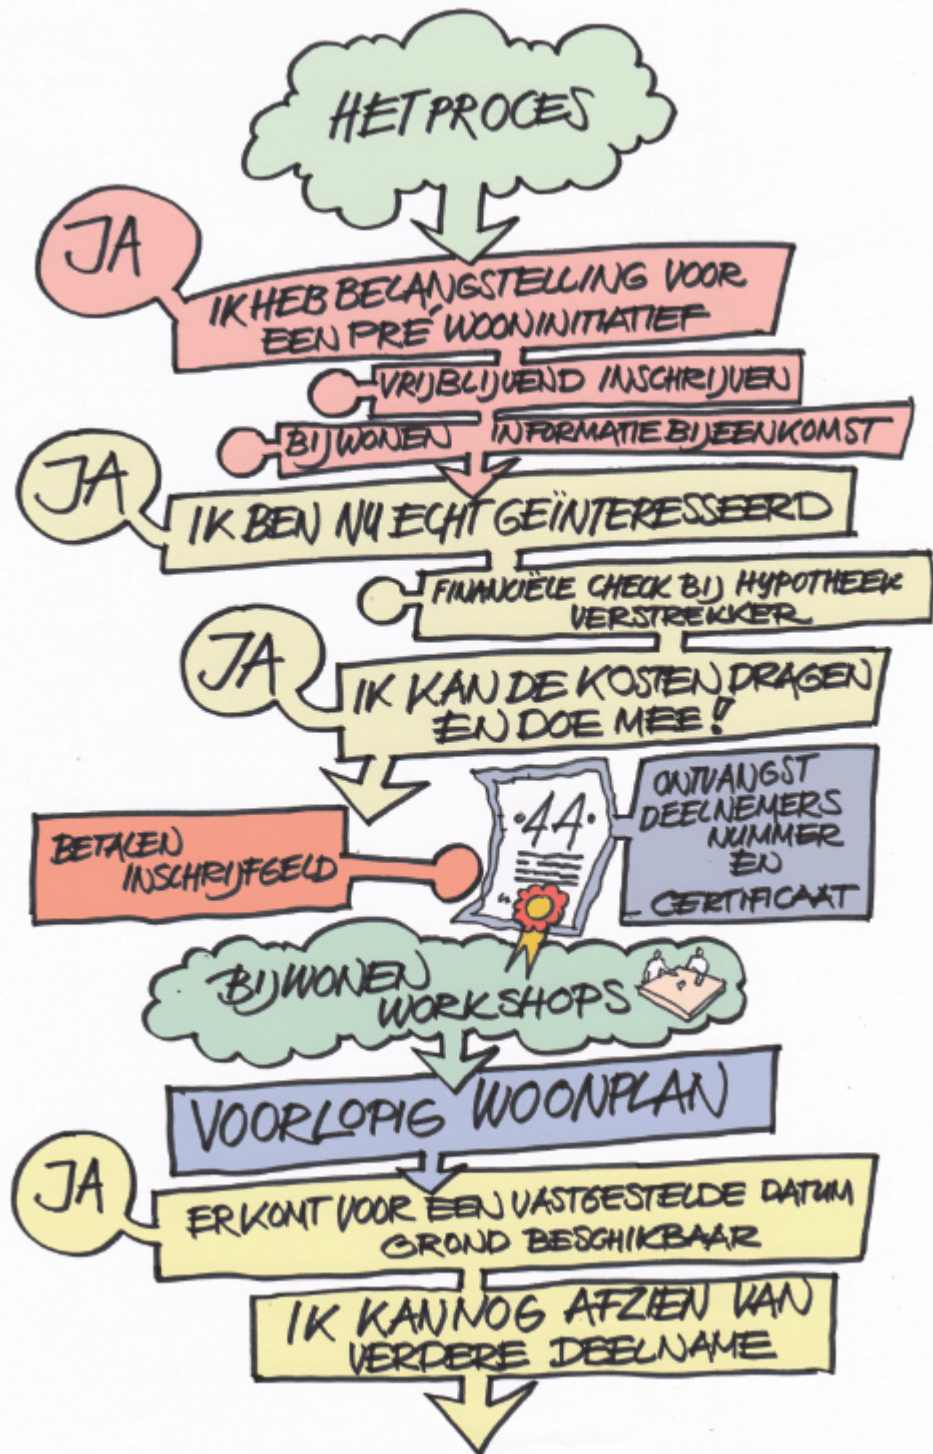 HET PROCES
JA
IK HEB BELANGSTELLING VOOR
EEN PRÉ WOONINITIATIEF
VRIJBLIJVEND INSCHRIJVEN
BIJWONEN INFORMATIEBIJEENKOMST
JA
IK BEN NU ECHT GEÏNTERESSEERD
FINANCIËLE CHECK BIJ HYPOTHEEK
VERSTREKKER
JA
IK KAN DE KOSTEN DRAGEN
EN DOE MEE!
BETALEN
INSCHRIJFGELD
·44·
ONTVANGST
DEELNEMERS
NUMMER
EN
CERTIFICAAT
BIJWONEN
WORKSHOPS
VOORLOPIG WOONPLAN
JA
ER KOMT VOOR EEN VASTGESTELDE DATUM
GROND BESCHIKBAAR
IK KAN NOG AFZIEN VAN
VERDERE DEELNAME